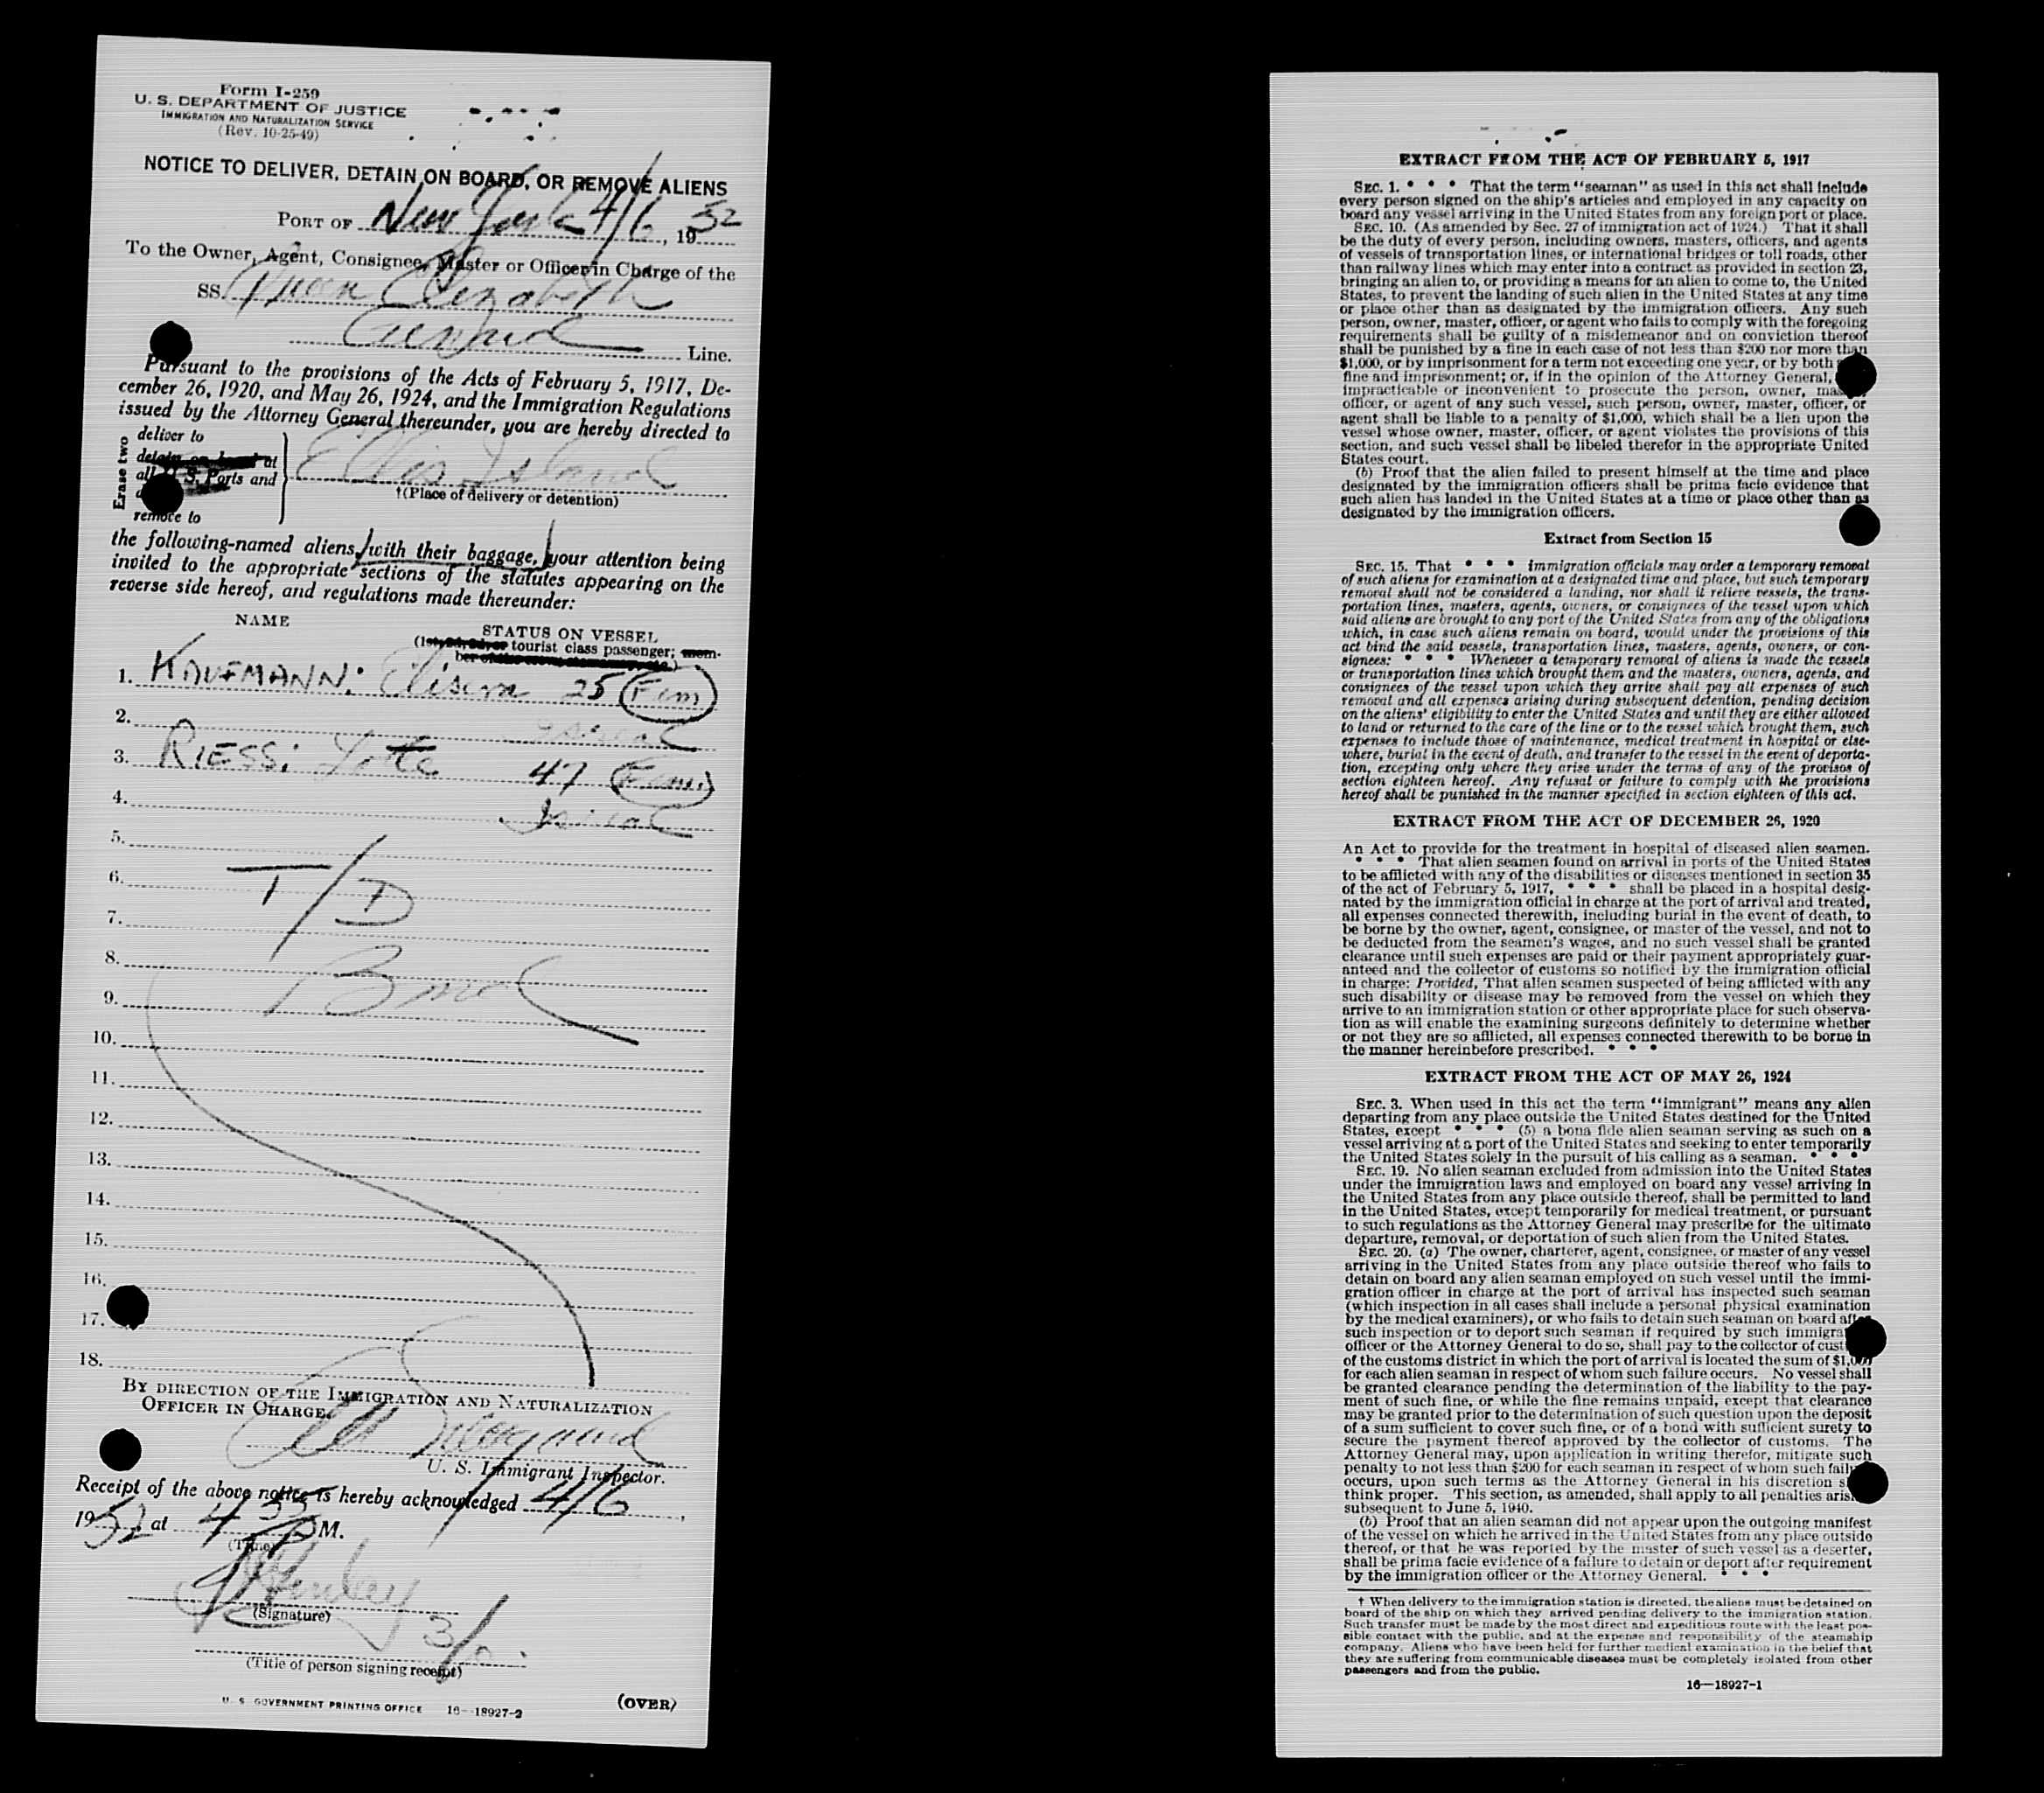 Form I-259
U. S. DEPARTMENT OF JUSTICE
IMMIGRATION AND NATURALIZATION SERVICE
(Rev. 10-25-49)
NOTICE TO DELIVER, DETAIN ON BOARD, OR REMOVE ALIENS
PORT OF New York 4/6, 1952
To the Owner, Agent, Consignee, Master or Officer in Charge of the
SS. Queen Elizabeth
Cunard Line.
Pursuant to the provisions of the Acts of February 5, 1917, De-
cember 26, 1920, and May 26, 1924, and the Immigration Regulations
issued by the Attorney General thereunder, you are hereby directed to
Erase two
deliver to
detain on board at
all U. S. Ports and
remove to
Ellis Island
†(Place of delivery or detention)
the following-named aliens, with their baggage, your attention being
invited to the appropriate sections of the statutes appearing on the
reverse side hereof, and regulations made thereunder:
NAME
STATUS ON VESSEL
(1st, 2d, 3d, or tourist class passenger; mem-
ber of the crew, stowaway, etc.)
1. KAUFMANN: 25 Fem
2. Israel
3. RIESS: Lotte 47 Fem.
4. Israel
5.
6. T/D
7.
8.
9.
10.
11.
12.
13.
14.
15.
16.
17.
18.
BY DIRECTION OF THE IMMIGRATION AND NATURALIZATION
OFFICER IN CHARGE.
U. S. Immigrant Inspector.
Receipt of the above notice is hereby acknowledged 4/6,
1952 at 4 35 P M.
(Time)
(Signature)
3/o.
(Title of person signing receipt)
U. S. GOVERNMENT PRINTING OFFICE 16—18927-2
(OVER)
EXTRACT FROM THE ACT OF FEBRUARY 5, 1917
SEC. 1. * * * That the term "seaman" as used in this act shall include
every person signed on the ship's articles and employed in any capacity on
board any vessel arriving in the United States from any foreign port or place.
SEC. 10. (As amended by Sec. 27 of immigration act of 1924.) That it shall
be the duty of every person, including owners, masters, officers, and agents
of vessels of transportation lines, or international bridges or toll roads, other
than railway lines which may enter into a contract as provided in section 23,
bringing an alien to, or providing a means for an alien to come to, the United
States, to prevent the landing of such alien in the United States at any time
or place other than as designated by the immigration officers. Any such
person, owner, master, officer, or agent who fails to comply with the foregoing
requirements shall be guilty of a misdemeanor and on conviction thereof
shall be punished by a fine in each case of not less than $200 nor more than
$1,000, or by imprisonment for a term not exceeding one year, or by both
fine and imprisonment; or, if in the opinion of the Attorney General,
impracticable or inconvenient to prosecute the person, owner, master,
officer, or agent of any such vessel, such person, owner, master, officer, or
agent shall be liable to a penalty of $1,000, which shall be a lien upon the
vessel whose owner, master, officer, or agent violates the provisions of this
section, and such vessel shall be libeled therefor in the appropriate United
States court.
(b) Proof that the alien failed to present himself at the time and place
designated by the immigration officers shall be prima facie evidence that
such alien has landed in the United States at a time or place other than as
designated by the immigration officers.
Extract from Section 15
SEC. 15. That * * * immigration officials may order a temporary removal
of such aliens for examination at a designated time and place, but such temporary
removal shall not be considered a landing, nor shall it relieve vessels, the trans-
portation lines, masters, agents, owners, or consignees of the vessel upon which
said aliens are brought to any port of the United States from any of the obligations
which, in case such aliens remain on board, would under the provisions of this
act bind the said vessels, transportation lines, masters, agents, owners, or con-
signees: * * * Whenever a temporary removal of aliens is made the vessels
or transportation lines which brought them and the masters, owners, agents, and
consignees of the vessel upon which they arrive shall pay all expenses of such
removal and all expenses arising during subsequent detention, pending decision
on the aliens' eligibility to enter the United States and until they are either allowed
to land or returned to the care of the line or to the vessel which brought them, such
expenses to include those of maintenance, medical treatment in hospital or else-
where, burial in the event of death, and transfer to the vessel in the event of deporta-
tion, excepting only where they arise under the terms of any of the provisos of
section eighteen hereof. Any refusal or failure to comply with the provisions
hereof shall be punished in the manner specified in section eighteen of this act.
EXTRACT FROM THE ACT OF DECEMBER 26, 1920
An Act to provide for the treatment in hospital of diseased alien seamen.
* * * That alien seamen found on arrival in ports of the United States
to be afflicted with any of the disabilities or diseases mentioned in section 35
of the act of February 5, 1917, * * * shall be placed in a hospital desig-
nated by the immigration official in charge at the port of arrival and treated,
all expenses connected therewith, including burial in the event of death, to
be borne by the owner, agent, consignee, or master of the vessel, and not to
be deducted from the seamen's wages, and no such vessel shall be granted
clearance until such expenses are paid or their payment appropriately guar-
anteed and the collector of customs so notified by the immigration official
in charge: Provided, That alien seamen suspected of being afflicted with any
such disability or disease may be removed from the vessel on which they
arrive to an immigration station or other appropriate place for such observa-
tion as will enable the examining surgeons definitely to determine whether
or not they are so afflicted, all expenses connected therewith to be borne in
the manner hereinbefore prescribed. * * *
EXTRACT FROM THE ACT OF MAY 26, 1924
SEC. 3. When used in this act the term "immigrant" means any alien
departing from any place outside the United States destined for the United
States, except * * * (5) a bona fide alien seaman serving as such on a
vessel arriving at a port of the United States and seeking to enter temporarily
the United States solely in the pursuit of his calling as a seaman. * * *
SEC. 19. No alien seaman excluded from admission into the United States
under the immigration laws and employed on board any vessel arriving in
the United States from any place outside thereof, shall be permitted to land
in the United States, except temporarily for medical treatment, or pursuant
to such regulations as the Attorney General may prescribe for the ultimate
departure, removal, or deportation of such alien from the United States.
SEC. 20. (a) The owner, charterer, agent, consignee, or master of any vessel
arriving in the United States from any place outside thereof who fails to
detain on board any alien seaman employed on such vessel until the immi-
gration officer in charge at the port of arrival has inspected such seaman
(which inspection in all cases shall include a personal physical examination
by the medical examiners), or who fails to detain such seaman on board after
such inspection or to deport such seaman if required by such immigration
officer or the Attorney General to do so, shall pay to the collector of customs
of the customs district in which the port of arrival is located the sum of $1,000
for each alien seaman in respect of whom such failure occurs. No vessel shall
be granted clearance pending the determination of the liability to the pay-
ment of such fine, or while the fine remains unpaid, except that clearance
may be granted prior to the determination of such question upon the deposit
of a sum sufficient to cover such fine, or of a bond with sufficient surety to
secure the payment thereof approved by the collector of customs. The
Attorney General may, upon application in writing therefor, mitigate such
penalty to not less than $200 for each seaman in respect of whom such failure
occurs, upon such terms as the Attorney General in his discretion shall
think proper. This section, as amended, shall apply to all penalties arising
subsequent to June 5, 1940.
(b) Proof that an alien seaman did not appear upon the outgoing manifest
of the vessel on which he arrived in the United States from any place outside
thereof, or that he was reported by the master of such vessel as a deserter,
shall be prima facie evidence of a failure to detain or deport after requirement
by the immigration officer or the Attorney General. * * *
† When delivery to the immigration station is directed, the aliens must be detained on
board of the ship on which they arrived pending delivery to the immigration station.
Such transfer must be made by the most direct and expeditious route with the least pos-
sible contact with the public, and at the expense and responsibility of the steamship
company. Aliens who have been held for further medical examination in the belief that
they are suffering from communicable diseases must be completely isolated from other
passengers and from the public.
16—18927-1